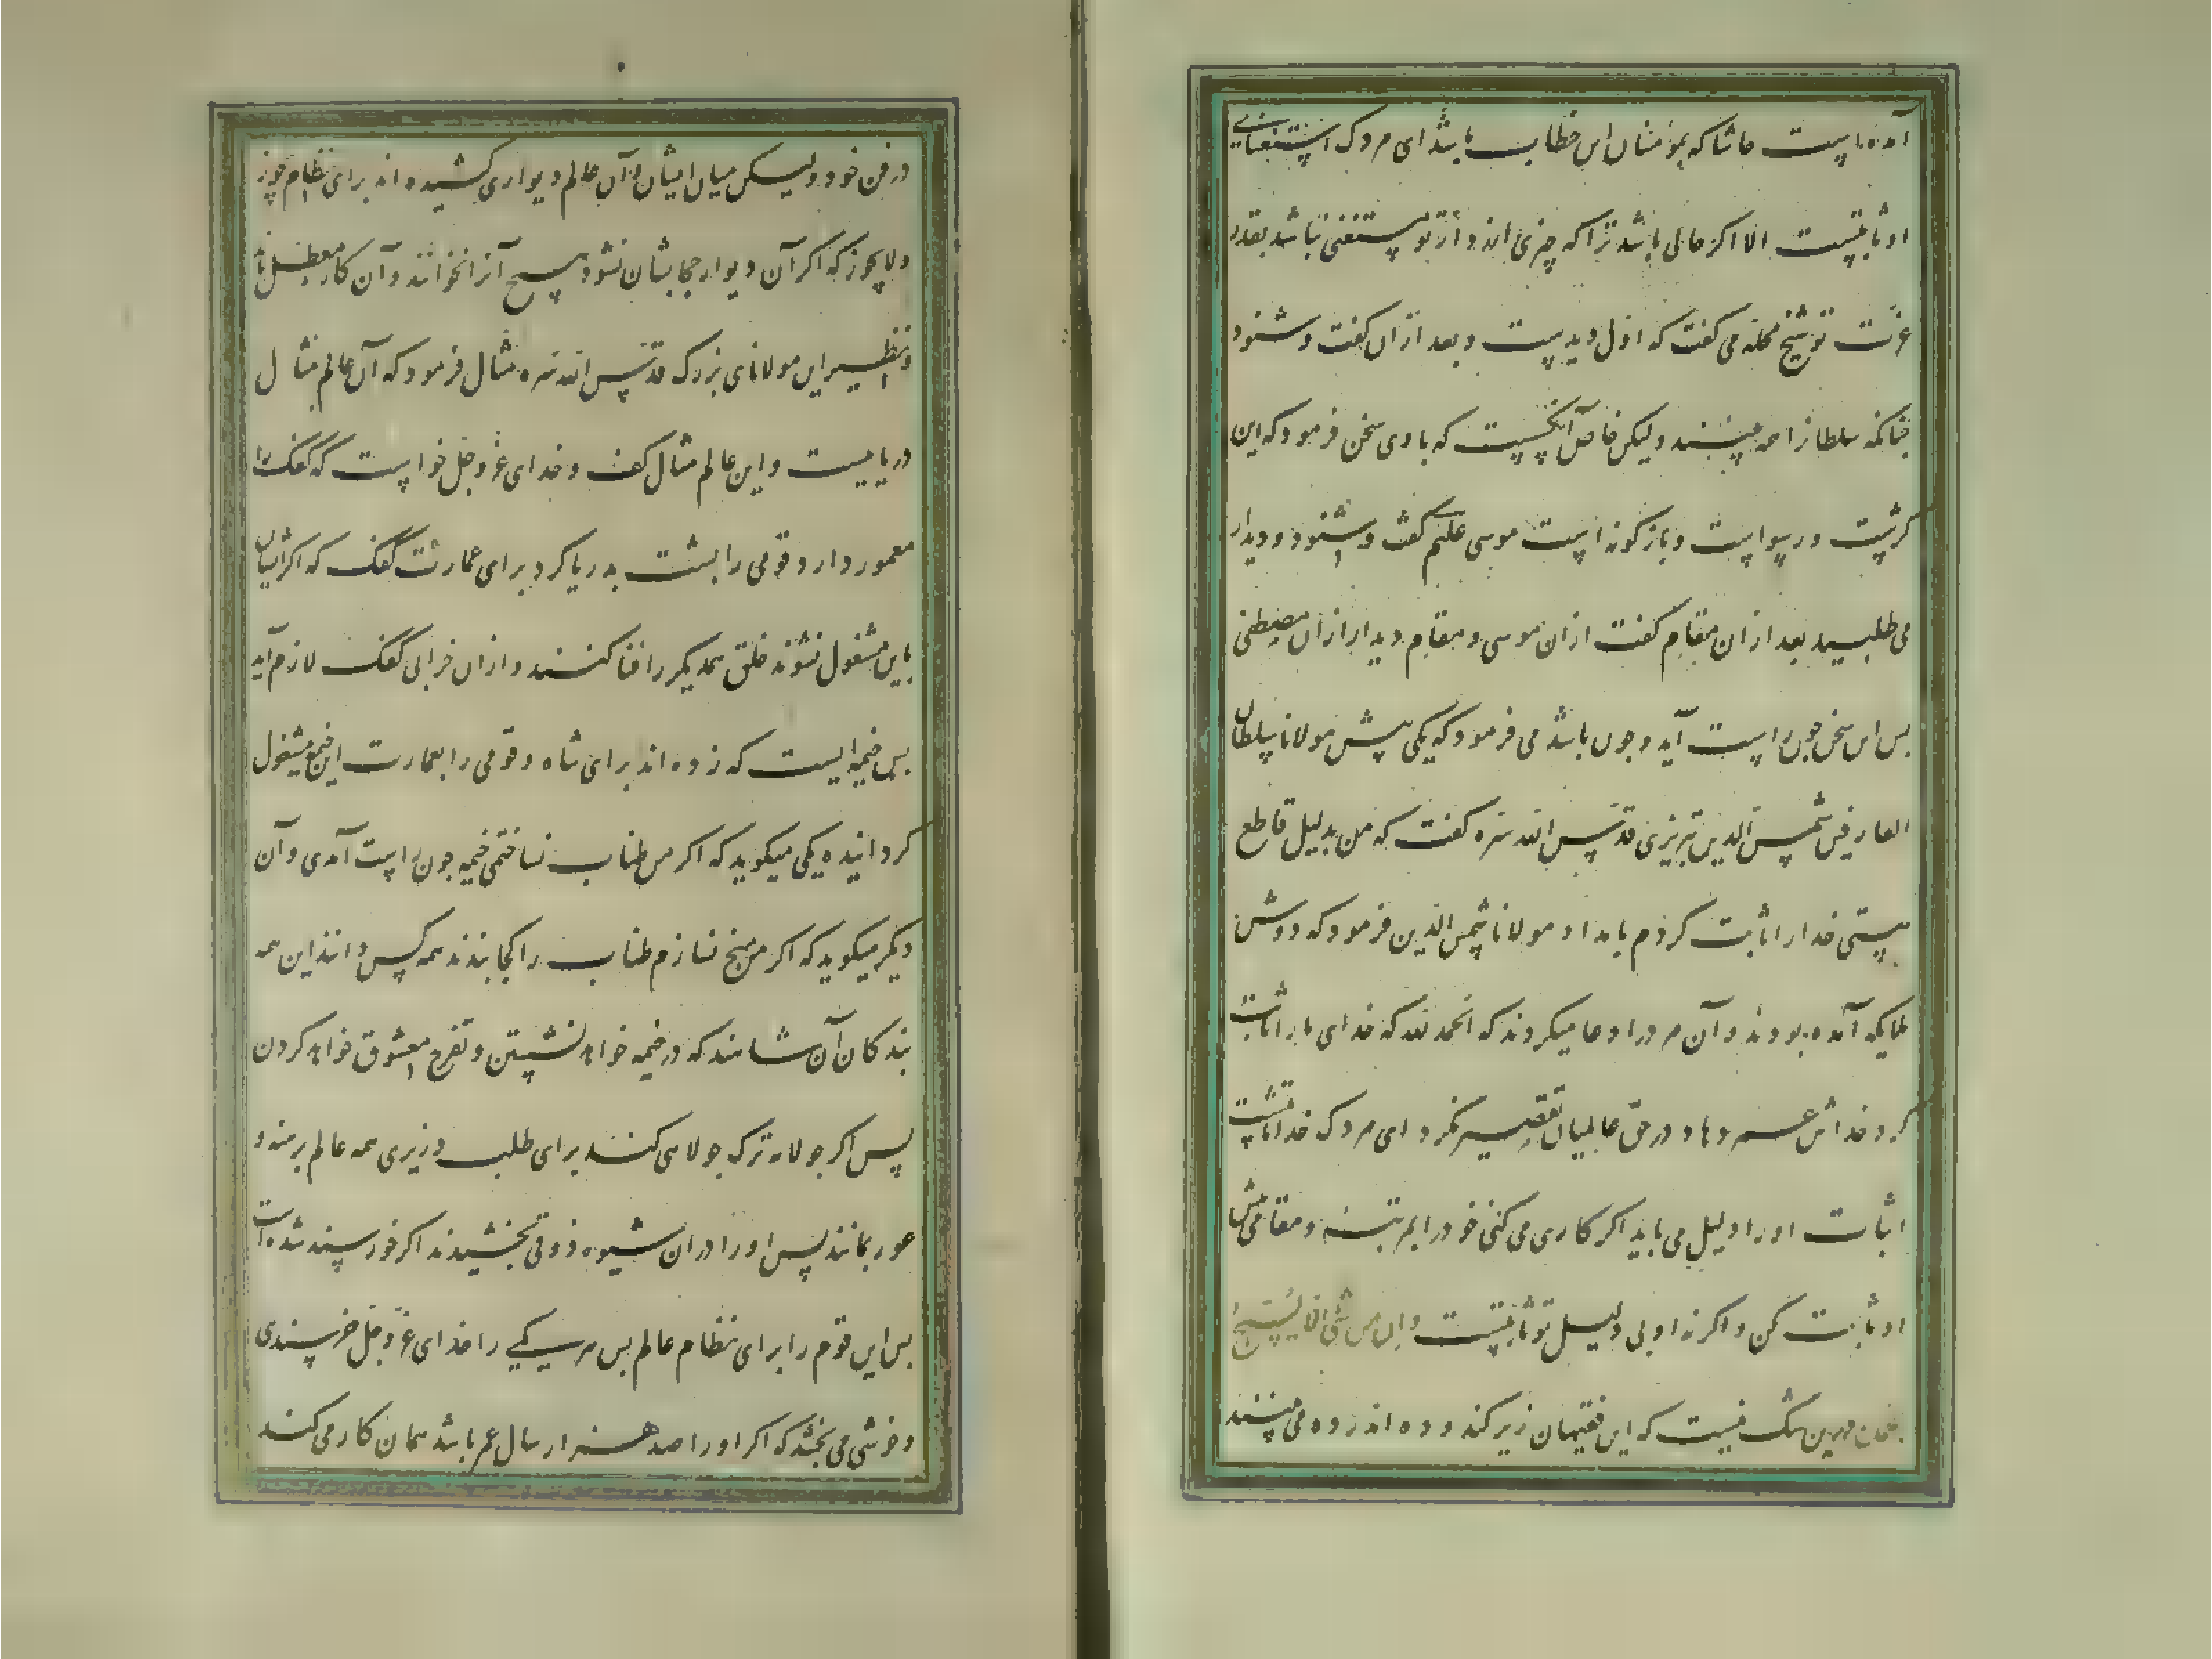 آمده است حاشا که بمؤمنان این خطاب باشد ای مردک استغنای
او ثابتست الا اگر حالی باشد ترا که چیزی ارزد از تو مستغنی نباشد بقدر
عزت تو شیخ محله می گفت که اول دیدست و بعد ازان گفت و شنود
چنانکه سلطانرا همه میبینند ولیکن خاص آنکسست که با وی سخن فرمود که این
کژست و رسواست و بازگونه است موسی علیم گفت و شنود و دیدار
می طلبید بعد ازان مقام گفت ازان موسی و مقام دیدار ازان مصطفی
بس این سخن چون راست آید و چون باشد می فرمود که یکی پیش مولانا سلطان
العارفین شمس الدین تبریزی قدس الله سره گفت که من بدلیل قاطع
هستی خدا را ثابت کردم بامداد مولانا شمس الدین فرمود که دوش
ملایکه آمده بودند و آن مرد را دعا میکردند که الحمد لله که خدای ما را ثابت
کرد خداش عمر دهاد در حق عالمیان تقصیر نکرد ای مردک خدا ثابتست
اثبات او را دلیل می باید اگر کاری می کنی خود را بمرتبه و مقامی پیش
او ثابت کن و اگر نه او بی دلیل ثابتست وان من شی الا یسبح
درین شک نیست که این فقیهان زیرکند و ده اندر ده می بینند
در فن خود ولیکن میان ایشان و آن عالم دیواری کشیده اند برای نظام یجوز
ولا یجوز که اگر آن دیوار حجابشان نشود هیچ آنرا نخوانند و آن کار معطل
و نظیر این مولانای بزرگ قدس الله سره مثال فرمود که آن عالم مثال
دریاییست و این عالم مثال کف و خدای عز و جل خواست که کفک را
معمور دارد قومی را پشت بدریا کرد برای عمارت کفک که اگر ایشان
باین مشغول نشوند خلق همدیگر را فنا کنند و ازان خرابی کفک لازم آید
بس خیمه ایست که زده اند برای شاه و قومی را بعمارت این خیمه مشغول
گردانیده یکی میگوید که اگر من طناب نساختمی خیمه چون راست آمدی و آن
دیگر میگوید که اگر من میخ نسازم طناب را کجا بندند همه کس دانند این همه
بندکان آن شاهند که در خیمه خواهد نشستن و تفرج معشوق خواهد کردن
پس اگر جولاه ترک جولاهی کند برای طلب وزیری همه عالم برهنه و
عور بمانند پس او را دران شیوه ذوقی بخشیدند که خرسند شده است
بس این قوم را برای نظام عالم بس هر یکی را خدای عز و جل خرسندی
و خوشی می بخشد که اگر او را صد هزار سال عمر باشد همان کار می کند